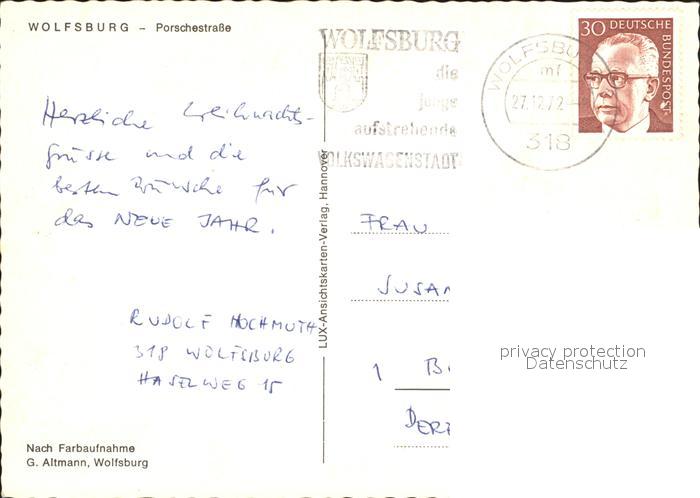 WOLFSBURG – Porschestraße
Herzliche Weihnachts-
grüsse und die
besten Wünsche für
das NEUE JAHR.
RUDOLF HOCHMUTH
318 WOLFSBURG
HASELWEG 15
Nach Farbaufnahme
G. Altmann, Wolfsburg
LUX-Ansichtskarten-Verlag, Hannover
WOLFSBURG
die
junge
aufstrebende
VOLKSWAGENSTADT
WOLFSBU
mf
27.12.72
318
30 DEUTSCHE
BUNDESPOST
FRAU
SUSAN
1 B
DER
privacy protection
Datenschutz